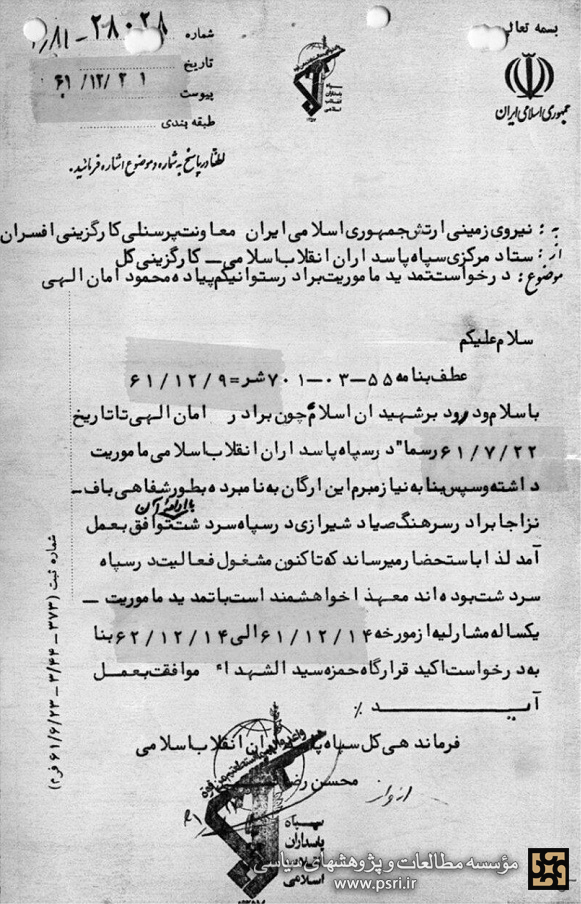 بسمه تعالی
جمهوری اسلامی ایران
سپاه
پاسداران
انقلاب
اسلامی
شماره ۲۸۰۲۸-
تاریخ ۶۱/۱۲/۲۱
پیوست
طبقه بندی
لطفاً در پاسخ به شماره و موضوع اشاره فرمائید.
به : نیروی زمینی ارتش جمهوری اسلامی ایران معاونت پرسنلی کارگزینی افسران
از : ستاد مرکزی سپاه پاسداران انقلاب اسلامی – کارگزینی کل
موضوع : درخواست تمدید ماموریت برادر ستوانیکم پیاده محمود امان الهی
سلام علیکم
عطف بنامه ۵۵–۰۳–۷۰۱ شر = ۶۱/۱۲/۹
باسلام و درود بر شهیدان اسلام چون برادر امان الهی تا تاریخ
۶۱/۷/۲۲ رسما" در سپاه پاسداران انقلاب اسلامی ماموریت
داشته و سپس بنا به نیاز مبرم این ارگان به نامبرده بطور شفاهی باف–
نزاجا برادر سرهنگ صیاد شیرازی در سپاه سردشت با ادامه آن توافق بعمل
آمد لذا باستحضار میرساند که تاکنون مشغول فعالیت در سپاه
سردشت بوده اند معهذا خواهشمند است با تمدید ماموریت –
یکساله مشارلیه از مورخه ۶۱/۱۲/۱۴ الی ۶۲/۱۲/۱۴ بنا
به درخواست اکید قرارگاه حمزه سیدالشهداء موافقت بعمل
آید ٪
فرماندهی کل سپاه پاسداران انقلاب اسلامی
محسن رضا
از واز
سپاه
پاسداران
انقلاب
اسلامی
شماره ثبت (۳۷۳ – ۳/۴۴ – ۶۱/۶/۲۳ فرم)
مؤسسه مطالعات و پژوهشهای سیاسی
www.psri.ir